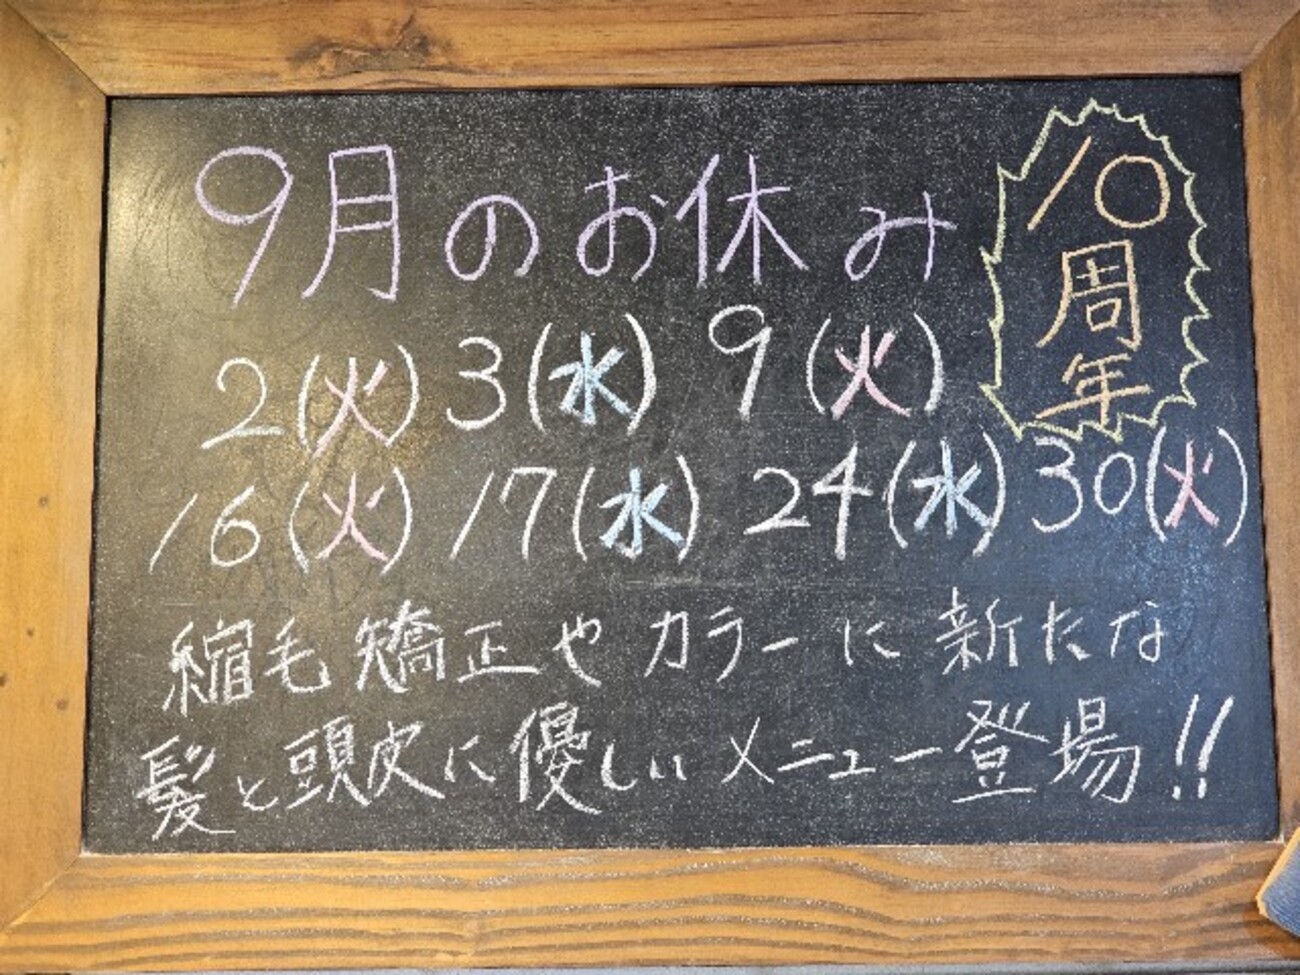 9月のお休み
10
周
年
2(火) 3(水) 9(火)
16(火) 17(水) 24(水) 30(火)
縮毛矯正やカラーに新たな
髪と頭皮に優しいメニュー登場!!